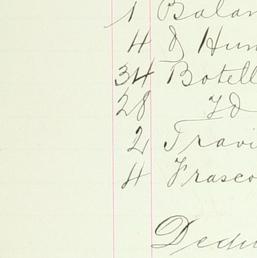 1 Balan
4 & Hun
34 Botell
28
2 Travi
4 Frasco
Dedu